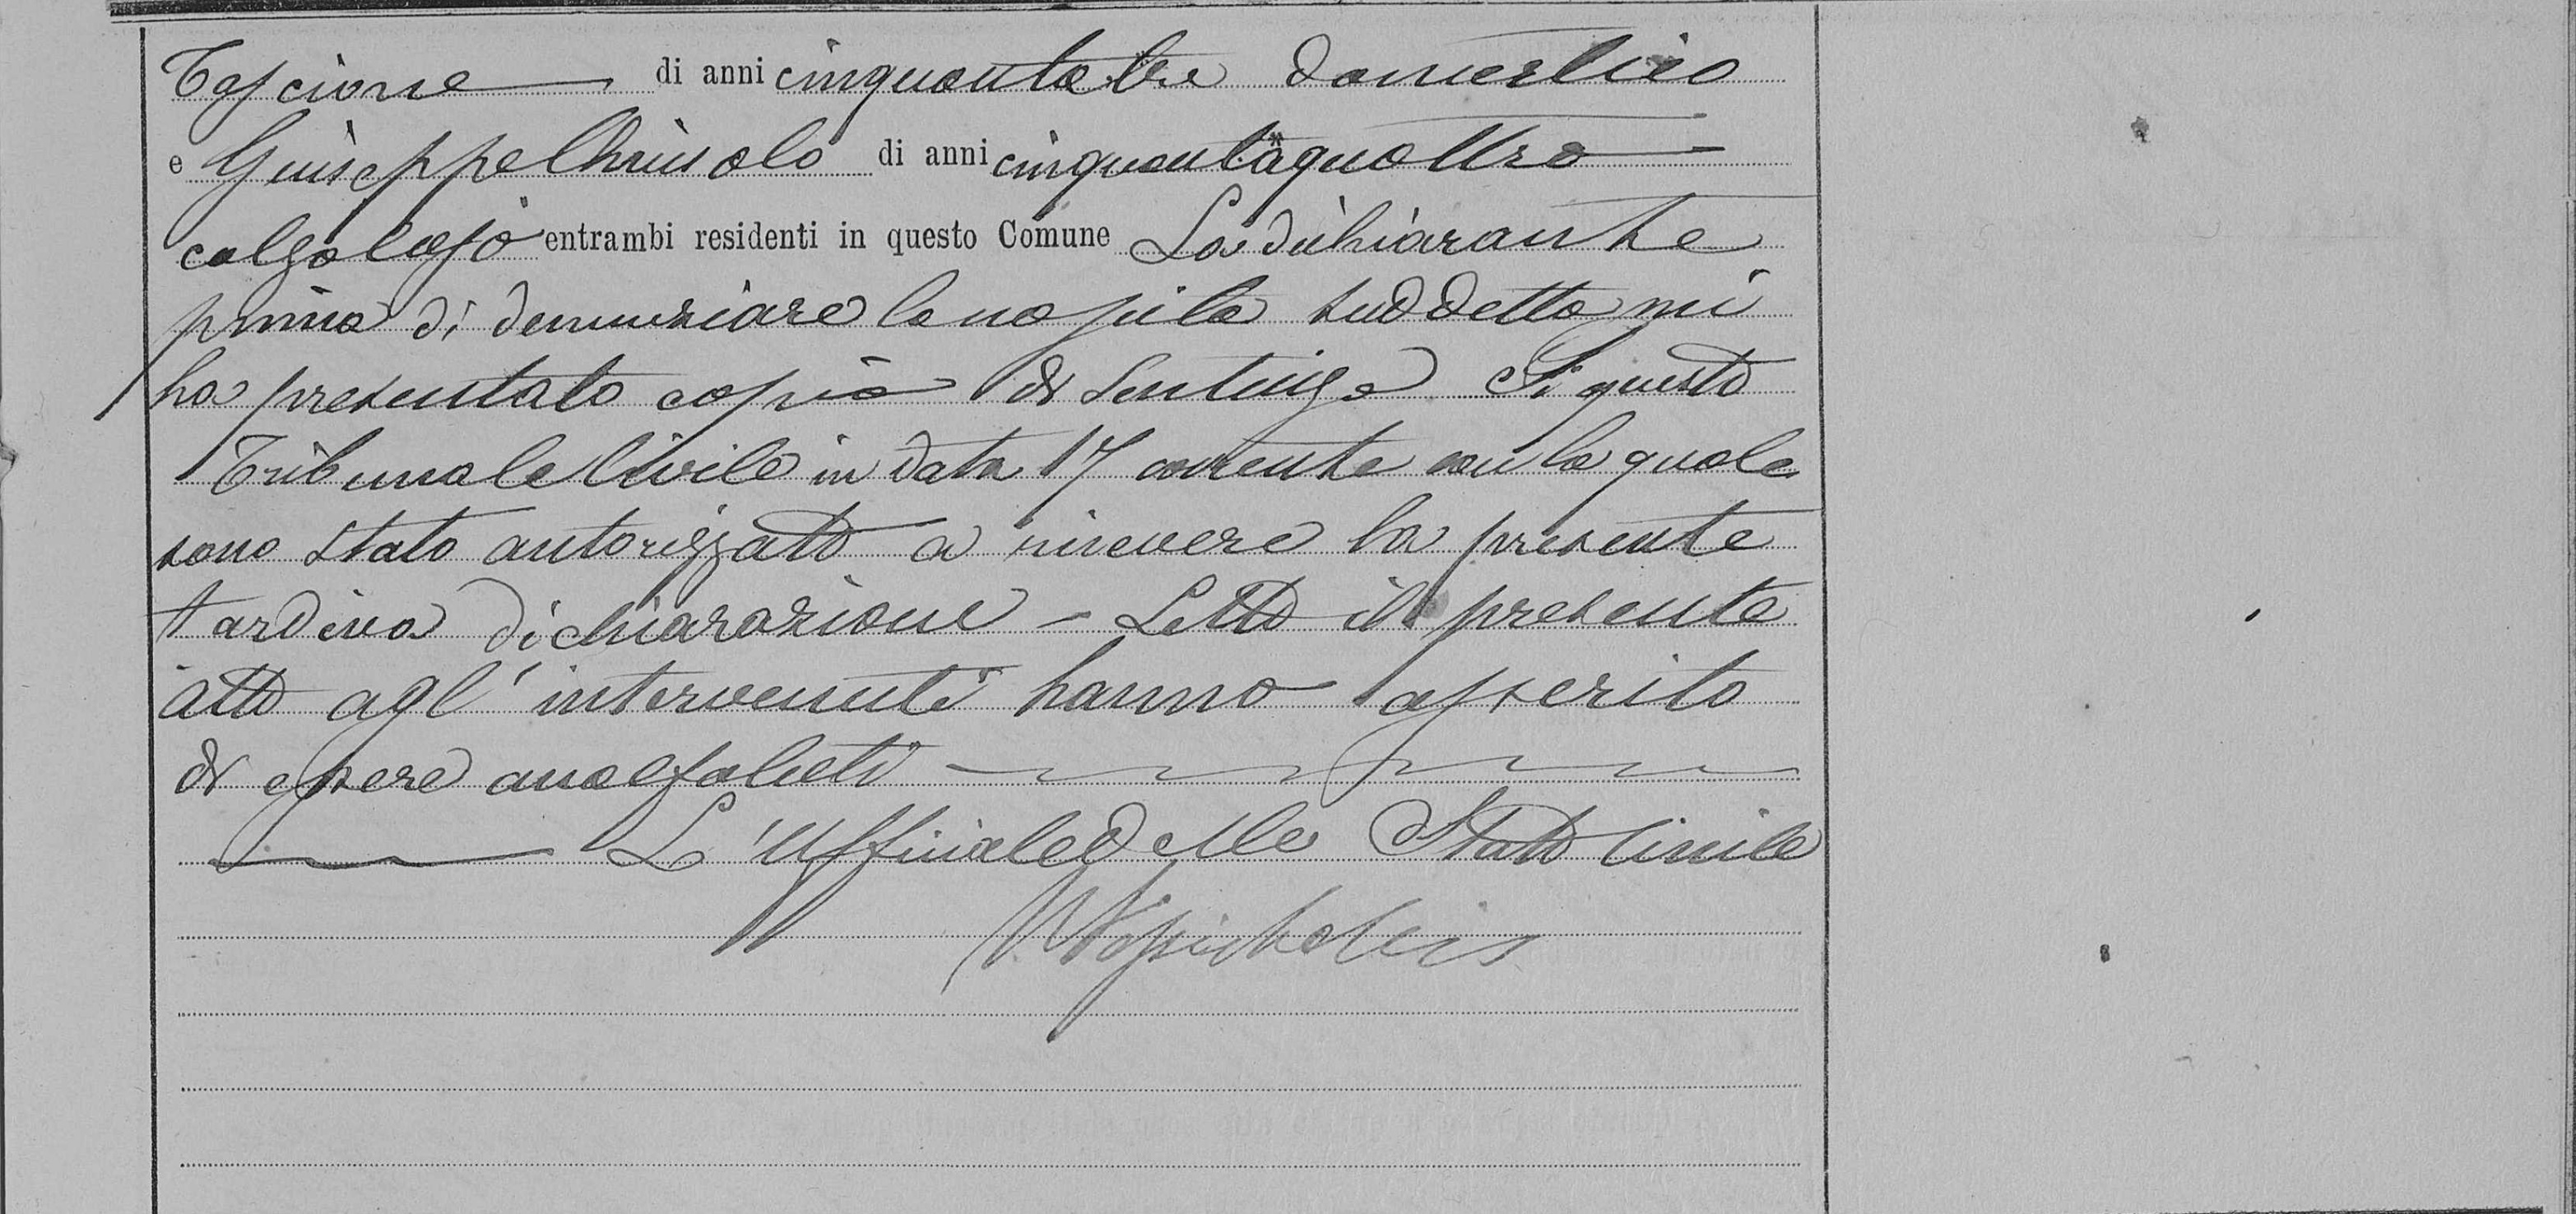 Tascione di anni cinquantatre domestico
e Giuseppe Chiusolo di anni cinquantaquattro
calzolajo entrambi residenti in questo Comune La dichiarante
prima di denunziare la nascita suddetta mi
ha presentato copia di Sentenza di questo
Tribunale Civile in data 17 corrente con la quale
sono stato autorizzato a ricevere la presente
tardiva dichiarazione – Letto il presente
atto agl'intervenuti hanno asserito
di essere analfabeti
L'Uffiziale dello Stato Civile